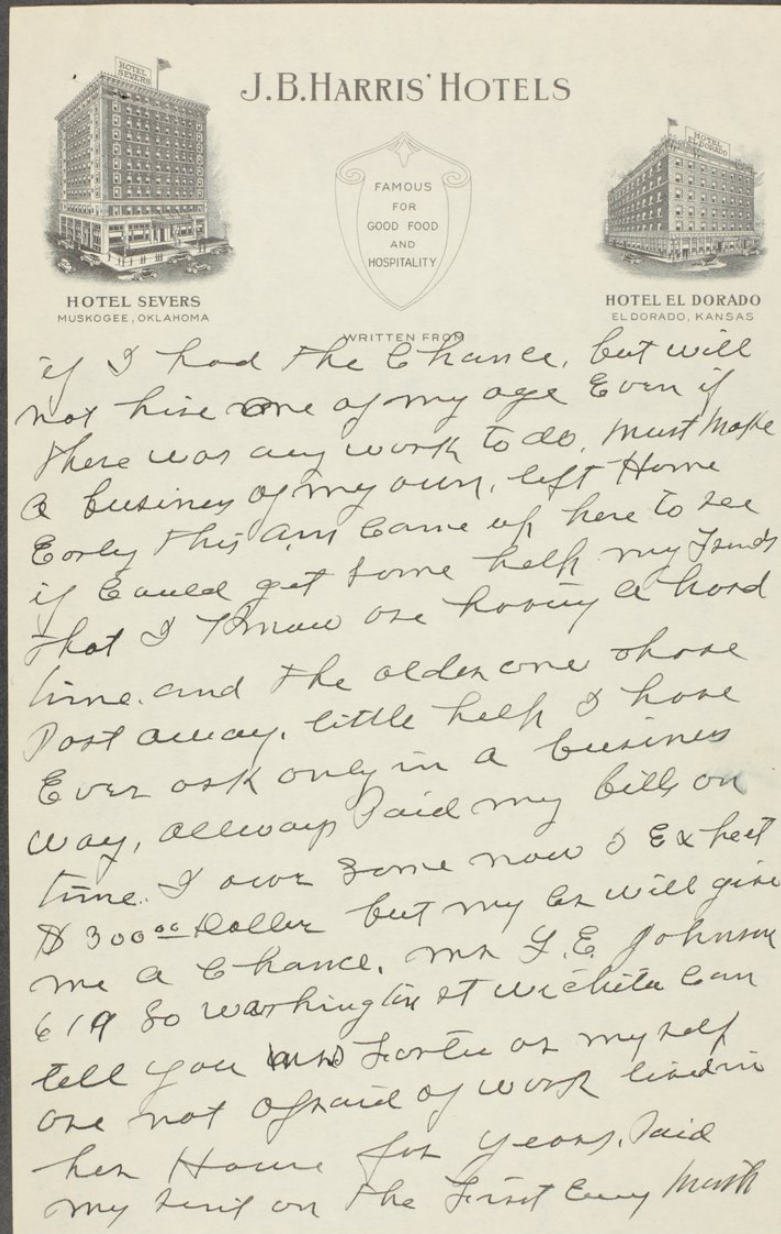 J.B. HARRIS' HOTELS
HOTEL SEVERS
HOTEL EL DORADO
FAMOUS
FOR
GOOD FOOD
AND
HOSPITALITY
HOTEL SEVERS
MUSKOGEE, OKLAHOMA
HOTEL EL DORADO
EL DORADO, KANSAS
WRITTEN FROM
if I had the Chance, but will
not hire one of my age Even if
there was any work to do, must make
a businey of my own, left Home
Early this am Came up here to see
if Could get some help my
that I know are having a hard
time. and the older one
Past away. little help I have
Ever ask only in a business
way, allways Paid my bills on
time. I owe some now I Expect
$300.00 Doller but my will give
me a Chance. Mr Johnson
619 So Washington st Wichita Can
tell you Mrs or my self
are not afraid of work lived in
her House for years. Paid
my rent on the First Every Month